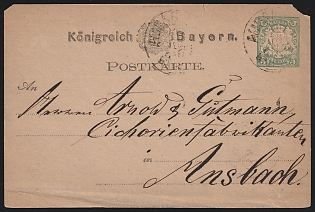 Königreich Bayern.
POSTKARTE.
An
Herren Arnold & Gutmann,
Cichorienfabrikanten
in
Ansbach.